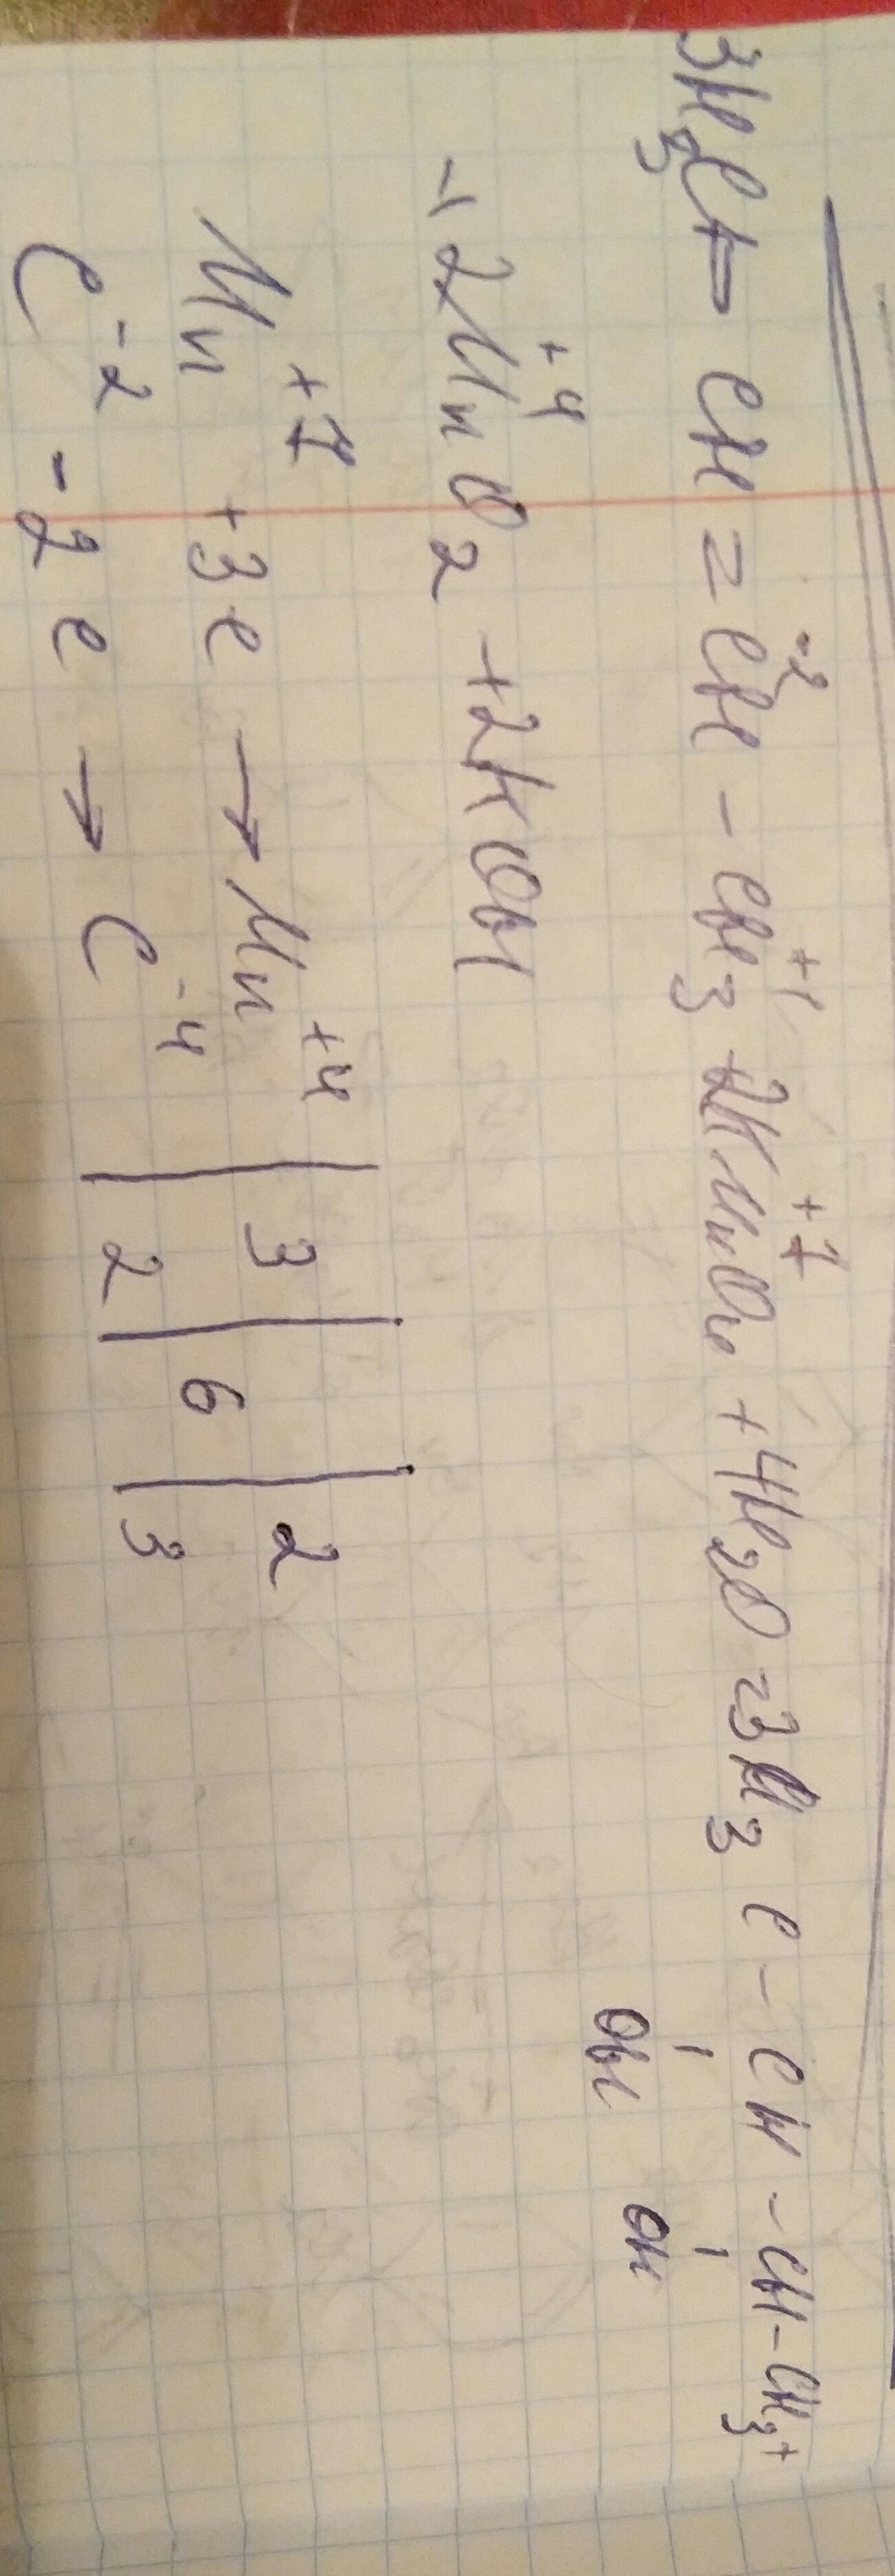 3H₃C – CH = CH⁻² – CH₃ + 2K⁺¹Mn⁺⁷O₄ + 4H₂O = 3H₃C – CH – CH – CH₃ +
OH OH
+ 2Mn⁺⁴O₂ + 2KOH
Mn⁺⁷ +3e → Mn⁺⁴ | 3 | 6 | 2
C⁻² -2e → C⁻⁴ | 2 | | 3